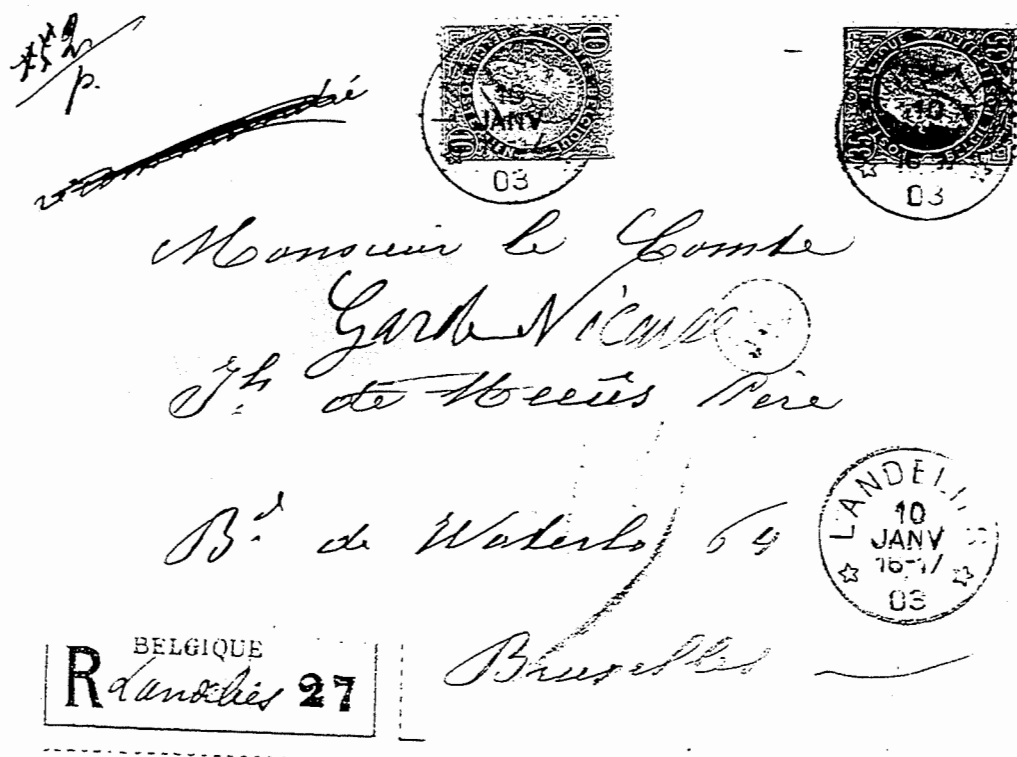 2
p.
10
JANV
03
10
35
10
16-17
03
Monsieur le Comte
Garde
Jh. de Meeûs Père
Bd. de Waterlo 64
LANDELIES
10
JANV
16-17
03
Bruxelles
BELGIQUE
R Landelies 27